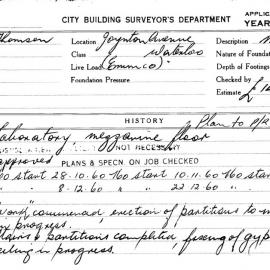 CITY BUILDING SURVEYOR'S DEPARTMENT
APPLIC
YEAR
Thomson
Location Joynton Avenue
Class Waterloo
Live Load (Emmco)
Foundation Pressure
Nature of Foundat
Depth of Footings
Checked by
£
HISTORY
Plan to P/R
Laboratory, mezzanine floor
approved
NOT NECESSARY
PLANS & SPECN. ON JOB CHECKED
start 28.10.60 start 10.11.60 start
8.12.60 22.12.60
Work commenced, erection of partitions to
progress.
partitions completed fixing of gyp
ceiling in progress.